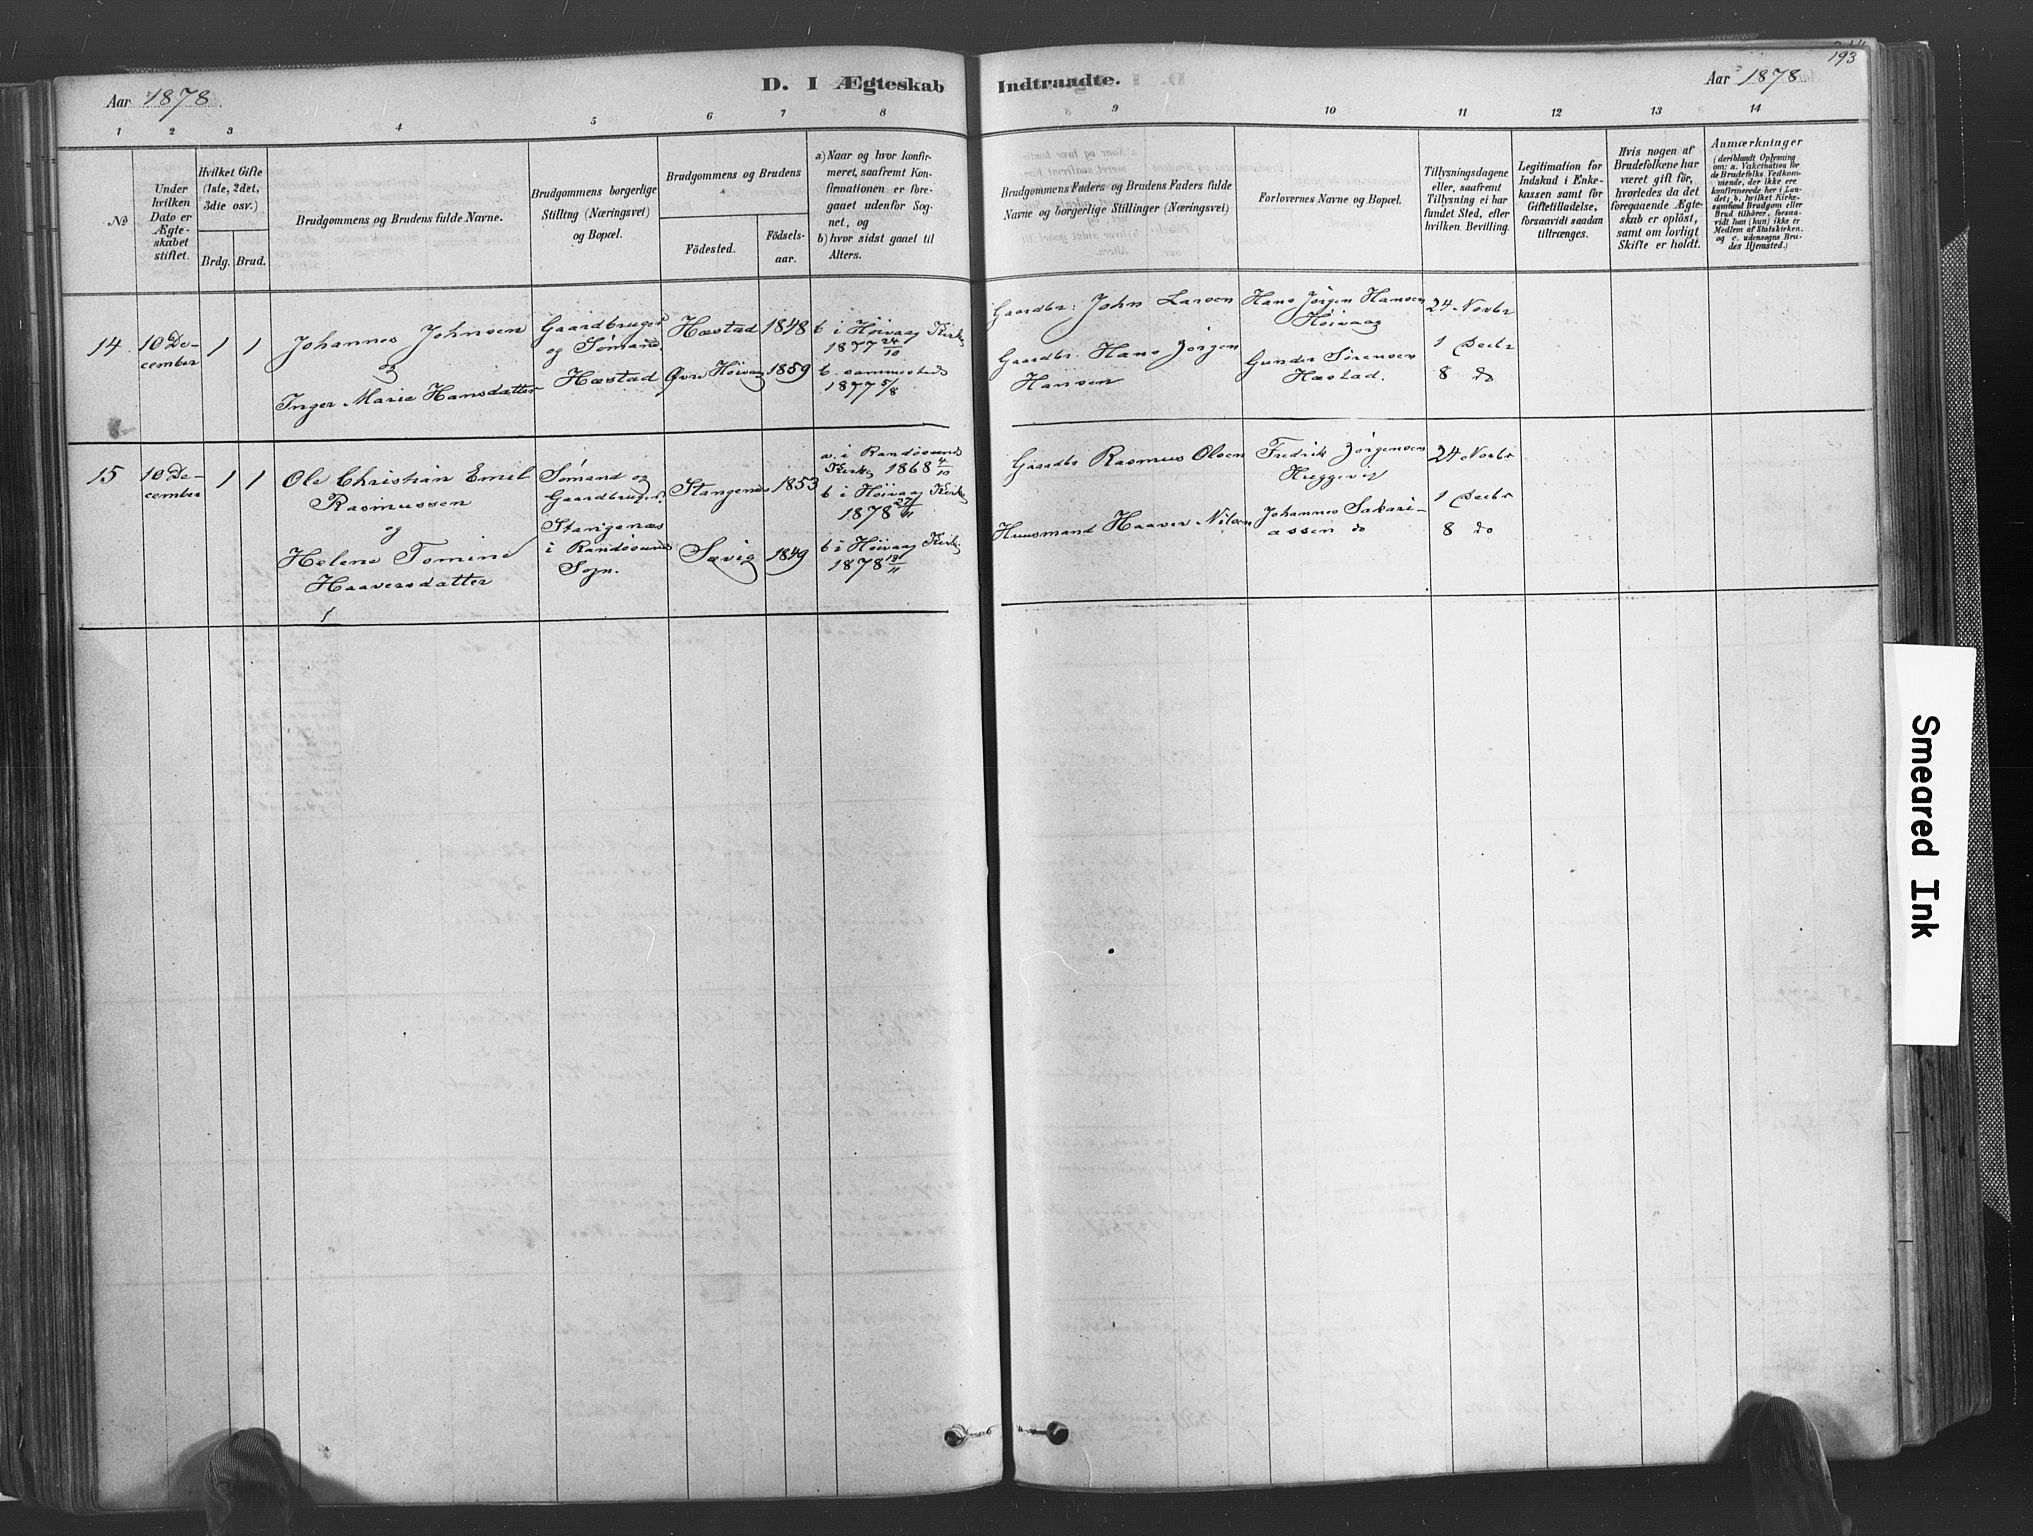 193
D. I Ægteskab Indtraadte.
Aar 1878.
Aar 1878.
1 2 3 4 5 6 7 8 9 10 11 12 13 14
No
Under
hvilken
Dato er
Ægte-
skabet
stiftet.
Hvilket Gifte
(1ste, 2det,
3die osv.)
Brdg. Brud.
Brudgommens og Brudens fulde Navne.
Brudgommens borgerlige
Stilling (Næringsvei)
og Bopæl.
Brudgommens og Brudens
Födested.
Födsels-
aar.
a) Naar og hvor konfir-
meret, saafremt Kon-
firmationen er fore-
gaaet udenfor Sog-
net, og
b) hvor sidst gaaet til
Alters.
Brudgommens Faders og Brudens Faders fulde
Navne og borgerlige Stillinger (Næringsvei)
Forlovernes Navne og Bopæl.
Tillysningsdagene
eller, saafremt
Tillysning ei har
fundet Sted, efter
hvilken Bevilling.
Legitimation for
Indskud i Enke-
kassen samt for
Giftetilladelse,
forsaavidt saadan
tiltrænges.
Hvis nogen af
Brudefolkene har
været gift för,
hvorledes da det
foregaaende Ægte-
skab er oplöst,
samt om lovligt
Skifte er holdt.
Anmærkninger
(deriblandt Oplysning
om: a. Vakcination for
de Brudefolks Vedkom-
mende, der ikke ere
konfirmerede her i Lan-
det; b. hvilket Kirke-
samfund Brudgom eller
Brud tilhörer, forsaa-
vidt han (hun) ikke er
Medlem af Statskirken,
og c. udensogns Bru-
des Hjemsted.)
14
10 De-
cember
1 1
Johannes Johnsen
og
Inger Marie Hansdatter
Gaardbruger
og Sømand.
Hæstad
Hæstad 1848
Øvre Höivaag 1859
b i Höivaag Kirke
1877 24/10
b. sammesteds
1877 5/8
Gaardbr: John Larsen
Gaardbr. Hans Jörgen
Hansen
Hans Jörgen Hansen
Höivaag
Gunder Sörensen
Hæstad.
24 Novbr
1 Decbr
8 do
15
10 De-
cember
1 1
Ole Christian Emil
Rasmussen
og
Helene Tomine
Haaversdatter
1
Sømand og
Gaardbruger.
Stangenæs
i Randösund
Sogn.
Stangenæs 1853
Sævig 1849
a. i Randösund
Kirke 1868 4/10
b i Höivaag Kirke
1878 27/11
b i Höivaag Kirke.
1878 13/11
Gaardbr Rasmus Olsen
Huusmand Haaver Nilsen
Fredrik Jörgensen
Hæggevig
Johannes Sakari-
assen do
24 Novbr
1 Decbr
8 do
Smeared Ink